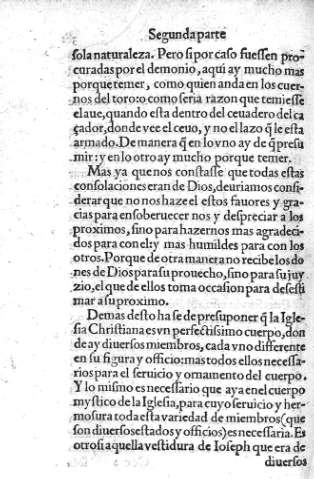 Segunda parte
sola naturaleza. Pero si por caso fuessen pro-
curadas por el demonio, aqui ay mucho mas
porque temer, como quien anda en los cuer-
nos del toro: o como seria razon que temiesse
el aue, quando esta dentro del ceuadero del ca
çador, donde vee el ceuo, y no el lazo q̃ le esta
armado. De manera q̃ en lo vno ay de q̃ presu
mir: y en lo otro ay mucho porque temer.
Mas ya que nos constasse que todas estas
consolaciones eran de Dios, deuriamos consi
derar que no nos haze el estos fauores y gra-
cias para ensoberuecer nos y despreciar a los
proximos, sino para hazernos mas agradeci-
dos para con el: y mas humildes para con los
otros. Porque de otra manera no recibe los do
nes de Dios para su prouecho, sino para su juy
zio, el que de ellos toma occasion para desesti
mar a su proximo.
Demas desto ha se de presuponer q̃ la Igle-
sia Christiana es vn perfectissimo cuerpo, don
de ay diuersos miembros, cada vno differente
en su figura y officio: mas todos ellos necessa-
rios para el seruicio y ornamento del cuerpo.
Y lo mismo es necessario que aya en el cuerpo
mystico de la Iglesia, para cuyo seruicio y her-
mosura toda esta variedad de miembros (que
son diuersos estados y officios) es necessaria. Es
otrosi aquella vestidura de Ioseph que era de
diuersos